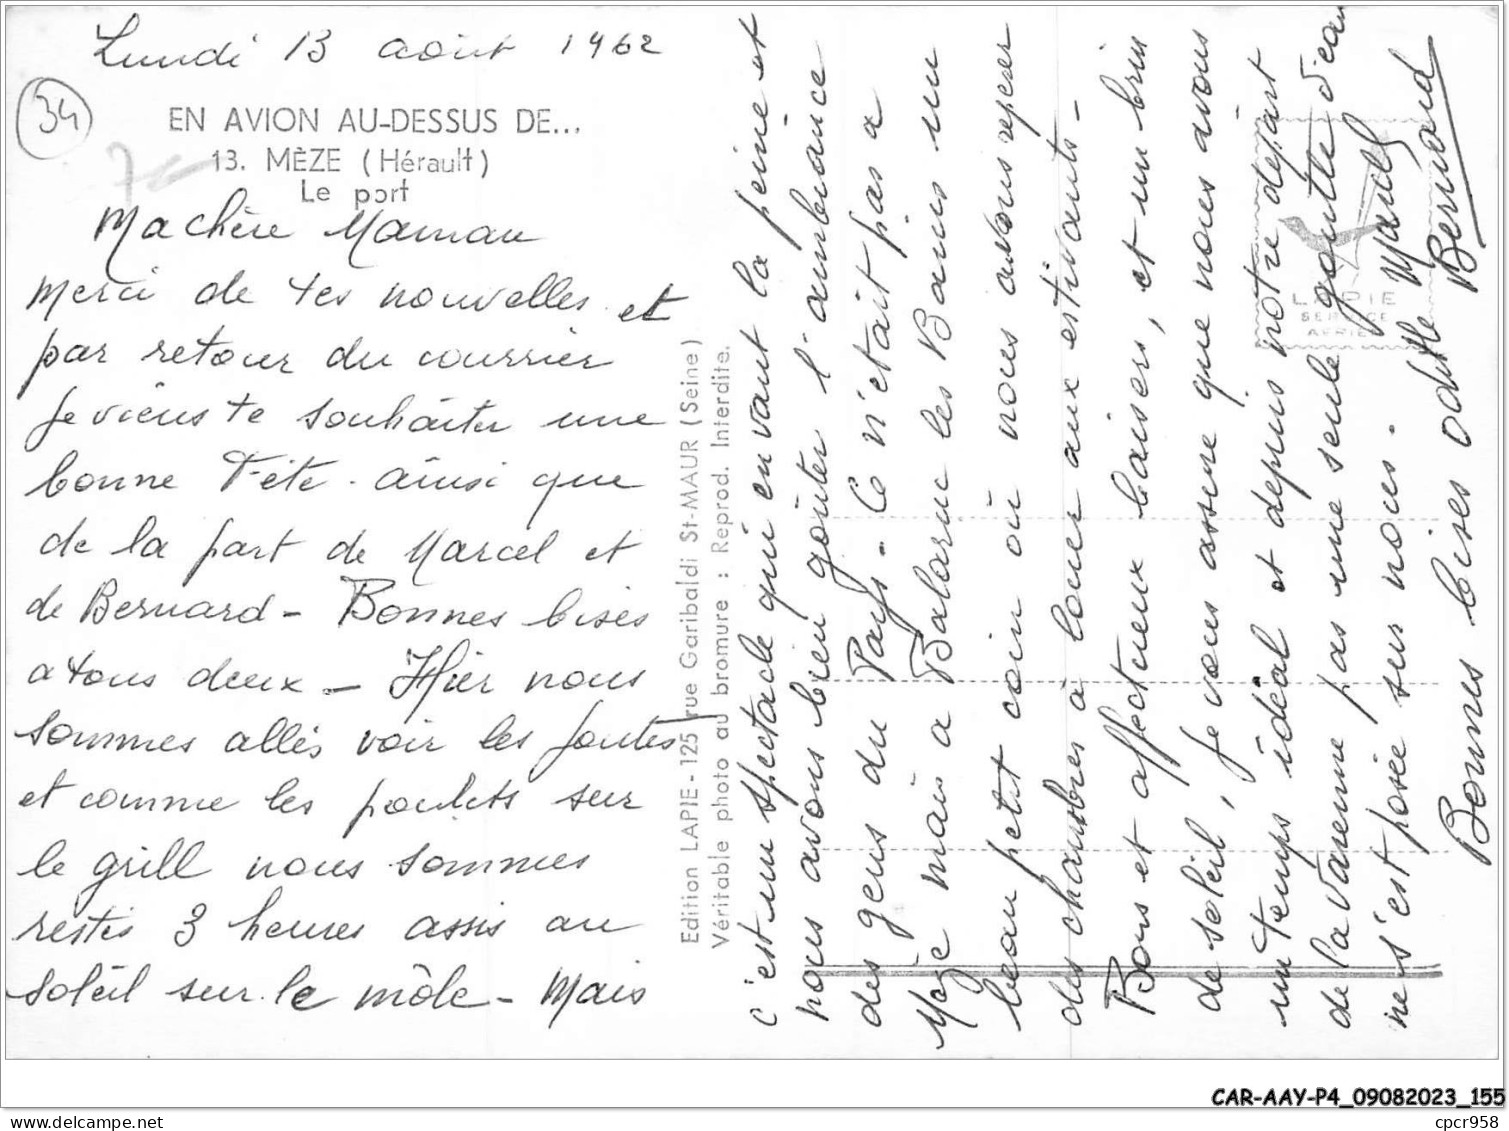 Lundi 13 août 1962
34
EN AVION AU-DESSUS DE...
13. MÈZE (Hérault)
Le port
Ma chère Maman
Merci de tes nouvelles et
par retour du courrier
je viens te souhaiter une
bonne Fête. ainsi que
de la part de Marcel et
de Bernard - Bonnes bises
a tous deux - Hier nous
sommes allés voir les joutes
et comme les poulets sur
le grill nous sommes
restés 3 heures assis au
soleil sur le môle - Mais
Edition LAPIE - 125 rue Garibaldi St-MAUR (Seine)
Véritable photo au bromure : Reprod. Interdite.
c'est un spectacle qui en vaut la peine et
nous avons bien goûter l'ambiance
des gens du Pays - Ce n'était pas a
Mèze mais a Balaruc les Bains un
beau petit coin où nous avons reperer
des chambres à louer aux estivants -
Bons et affectueux baisers, et un brin
de soleil, je vous assure que nous avons
un temps idéal et depuis notre départ
de la Varenne pas une seule goutte d'eau
ne s'est posée sur nous.
Bonnes bises Odette Marcel
Bernard
LAPIE
SERVICE
AERIEN
CAR-AAY-P4_09082023_155
delcampe.net
cpcr958